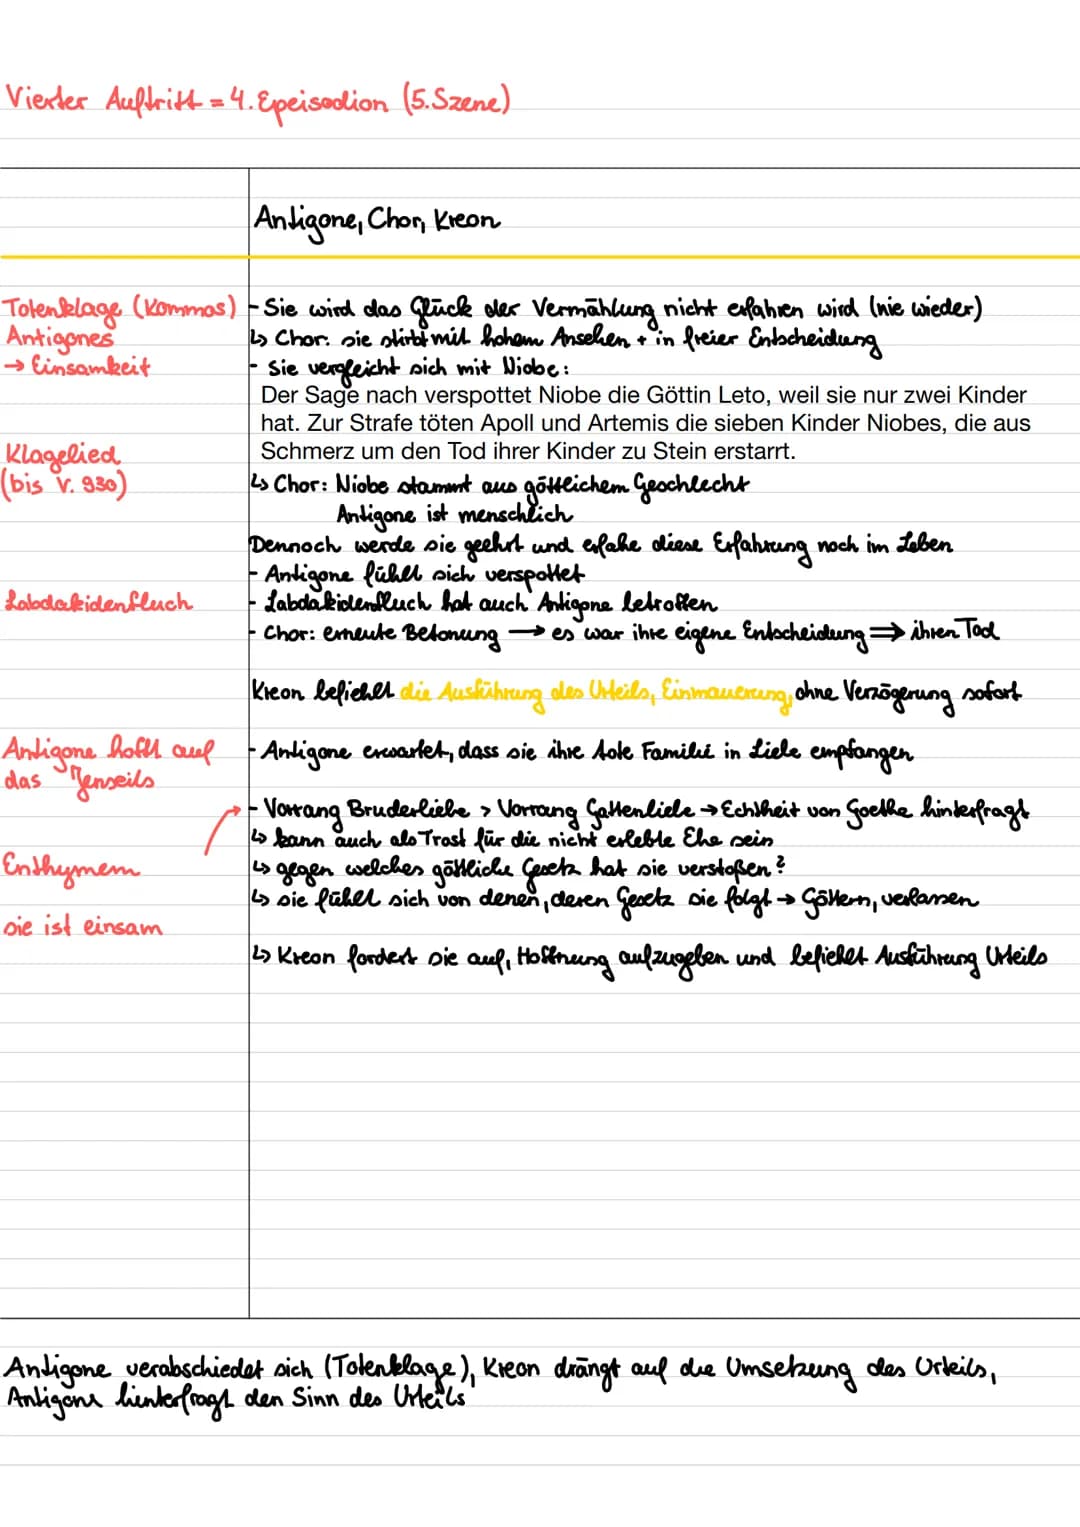 Vierter Auftritt = 4. Epeisodion (5. Szene)
Antigone, Chor, Kreon
Totenklage (Kommos)
Antigones
→ Einsamkeit
- Sie wird das Glück der Vermählung nicht erfahren wird (nie wieder)
↳ Chor: sie stirbt mit hohem Ansehen + in freier Entscheidung
- Sie vergleicht sich mit Niobe:
Der Sage nach verspottet Niobe die Göttin Leto, weil sie nur zwei Kinder
hat. Zur Strafe töten Apoll und Artemis die sieben Kinder Niobes, die aus
Schmerz um den Tod ihrer Kinder zu Stein erstarrt.
Klagelied
(bis V. 930)
↳ Chor: Niobe stammt aus göttlichem Geschlecht
Antigone ist menschlich
Dennoch werde sie geehrt und erfahe diese Erfahrung noch im Leben
- Antigone fühlt sich verspottet
Labdakidenfluch
- Labdakidenfluch hat auch Antigone betroffen
- Chor: erneute Betonung → es war ihre eigene Entscheidung ⇒ ihren Tod
Kreon befiehlt die Ausführung des Urteils, Einmauerung, ohne Verzögerung sofort
Antigone hofft auf
das Jenseits
- Antigone erwartet, dass sie ihre tote Familie in Liebe empfangen
- Vorrang Bruderliebe > Vorrang Gattenliebe → Echtheit von Goethe hinterfragt
↳ kann auch als Trost für die nicht erlebte Ehe sein
Enthymem
↳ gegen welches göttliche Gesetz hat sie verstoßen?
↳ sie fühlt sich von denen, deren Gesetz sie folgt → Göttern, verlassen
sie ist einsam
↳ Kreon fordert sie auf, Hoffnung aufzugeben und befiehlt Ausführung Urteils
Antigone verabschiedet sich (Totenklage), Kreon drängt auf die Umsetzung des Urteils,
Antigone hinterfragt den Sinn des Urteils